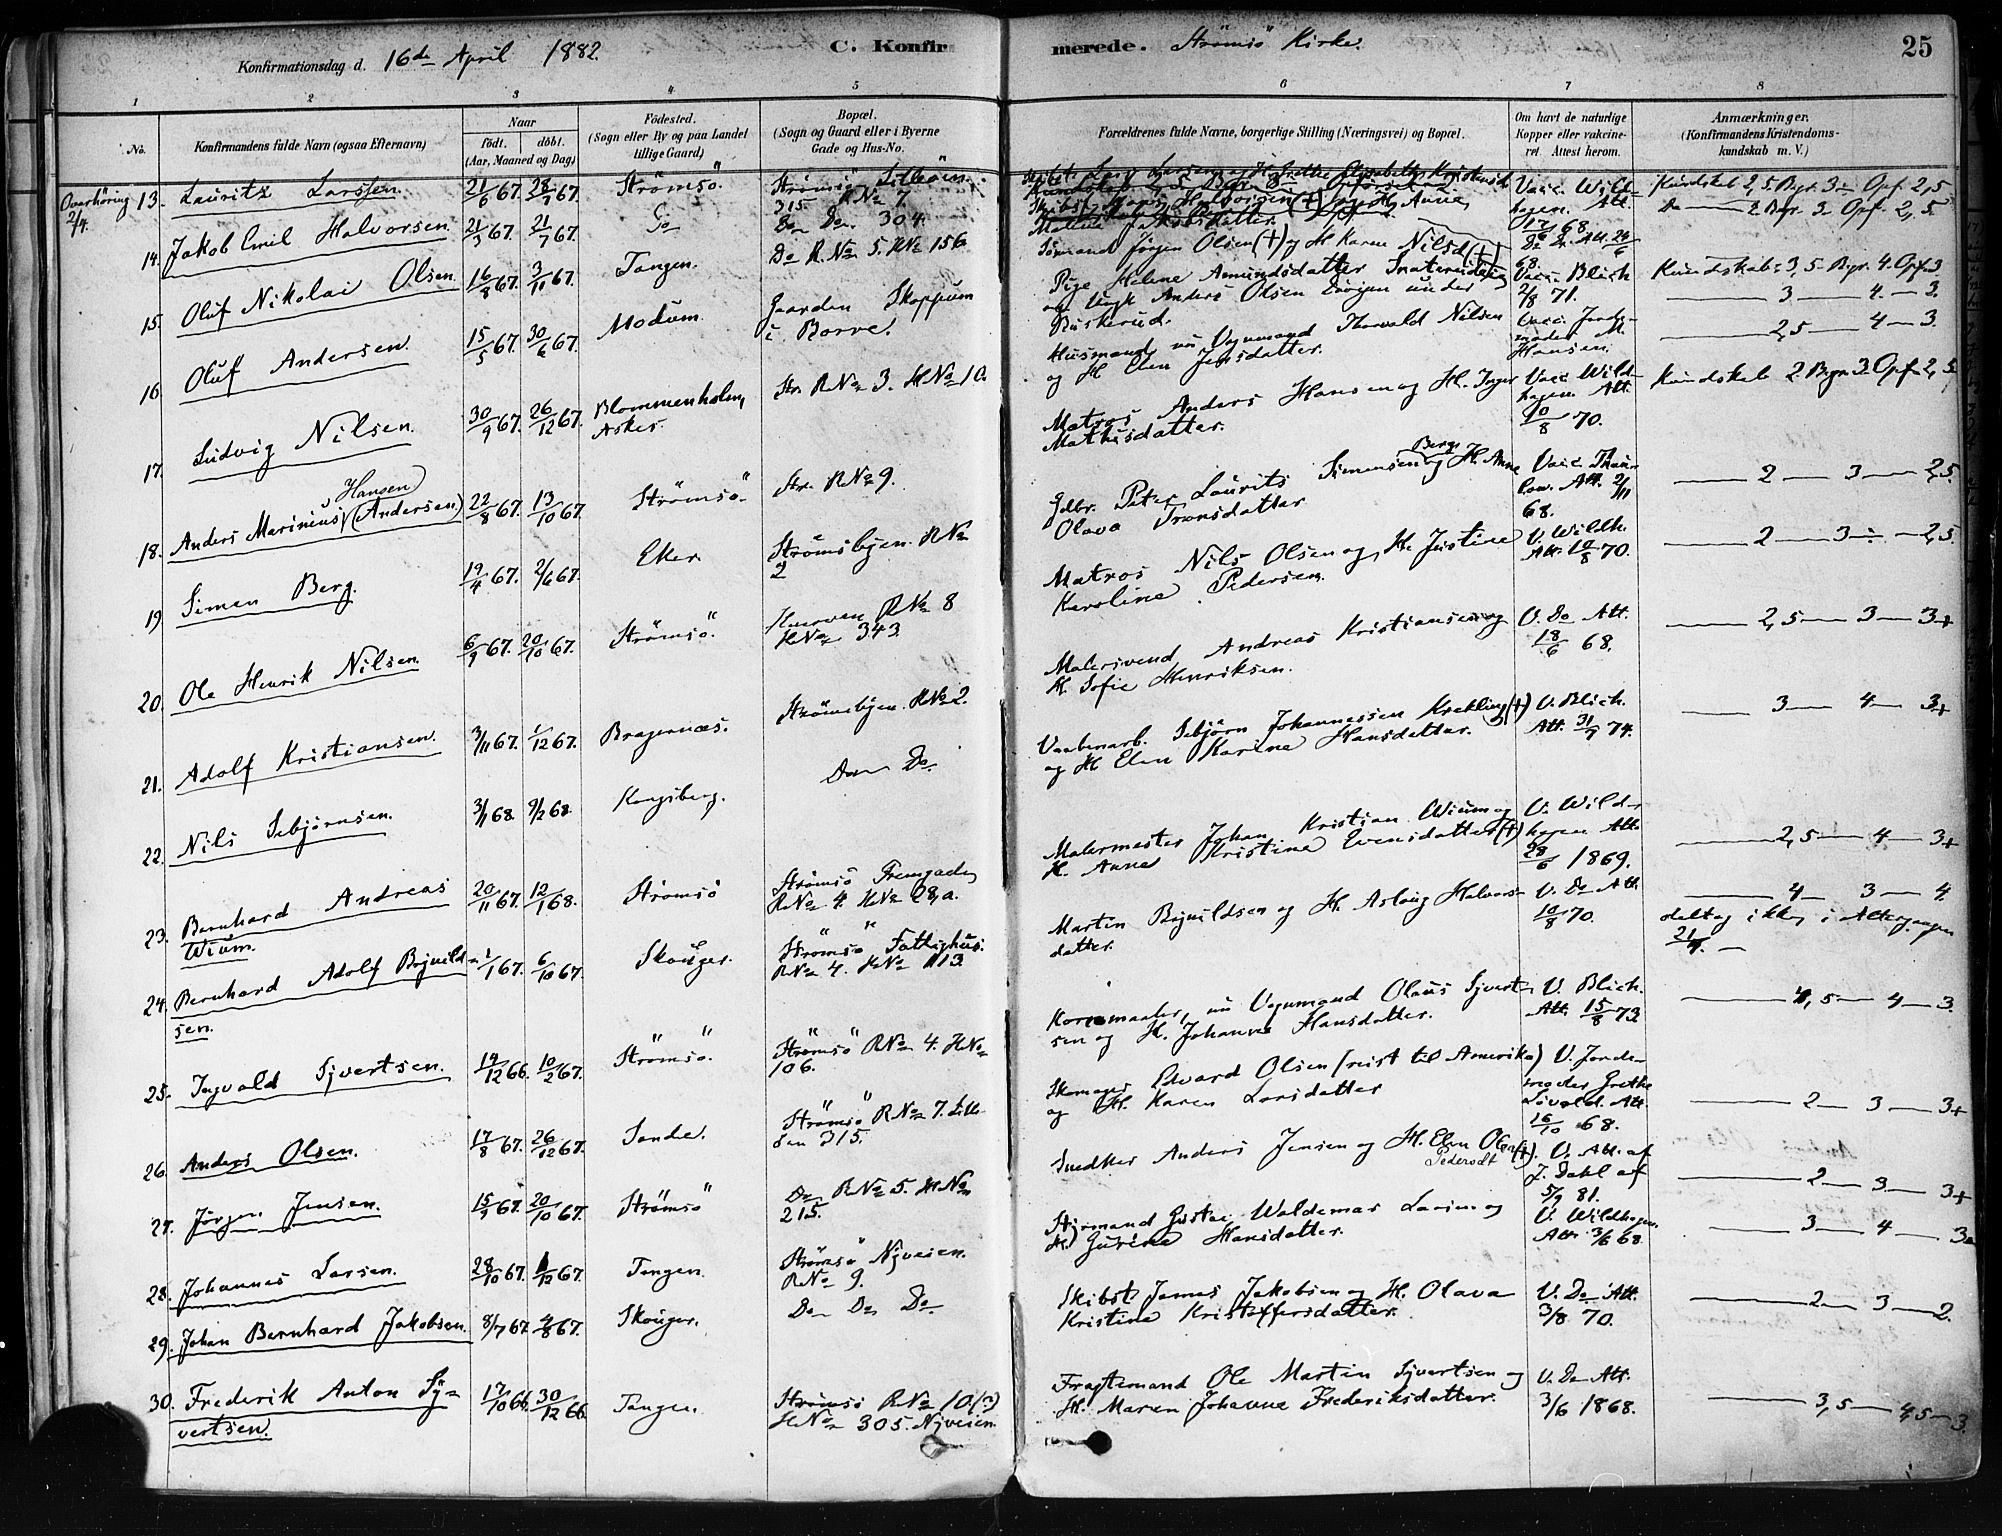 25
Konfirmationsdag d. 16de April 1882.
C. Konfirmerede. Strömsö Kirke.
1 2 3 4 5 6 7 8
No.
Konfirmandens fulde Navn (ogsaa Efternavn)
Naar
födt. döbt.
(Aar, Maaned og Dag)
Födested.
(Sogn eller By og paa Landet
tillige Gaard)
Bopæl.
(Sogn og Gaard eller i Byerne
Gade og Hus-No.
Forældrenes fulde Navne, borgerlige Stilling (Næringsvei) og Bopæl.
Om havt de naturlige
Kopper eller vakcine-
ret. Attest herom.
Anmærkninger.
(Konfirmandens Kristendoms-
kundskab m. V.)
Overhöring 2/4.
13. Lauritz Larssen. 21/6 67. 28/7 67. Strömsö.
315 RNo 7.
Vacc. Wild-
hagen. Att.
17/6 68.
Kundskab 2,5. Bgr. 3 Opf. 2,5
14. Jakob Emil Halvorsen. 21/3 67. 21/7 67. Do
Do Do. 304.
Do 2 Bgr. 3 Opf. 2,5.
15. Oluf Nikolai Olsen 16/8 67. 3/11 67. Tangen.
Do R.No 5. HNo 156.
Sömand Jørgen Olsen (+) og H. Karen Nilsd (+)
Kundskab: 3,5 Bgr. 4. Opf. 3.
16. Oluf Andersen 15/5 67. 30/6 67. Modum.
Gaarden Skoppum
i Borre.
Pige Helene Amundsdatter
og Ungk Anders Olsen under
Buskerud.
Vacc. Blich
2/8 71.
3 4. 3.
17. Ludvig Nilsen. 30/9 67. 26/12 67. Blommenholm,
Asker.
Str. RNo 3. HNo 10.
Husmand, nu Vognmand Thorvald Nilsen
og H Elen Jensdatter.
Vacc. Jorde-
moder
Hansen.
2,5 4 3.
18. Anders Marinius Hansen (Andersen) 22/8 67. 13/10 67. Strömsö.
Str. RNo 9.
Matros Anders Hansen og H. Inger
Mathisdatter.
Vacc. Wild-
hagen Att.
10/8 70.
Kundskab 2 Bgr. 3. Opf. 2,5
19 Simen Berg. 19/4 67. 2/6 67. Eker
Strömsbyen. RNo
2
Gdbr. Peter Laurits Simensen Berg og H. Anne
Olava Tronsdatter
Vacc. Thau-
low. Att. 2/11
68.
2 3 2,5.
20. Ole Henrik Nilsen. 6/9 67. 20/10 67. Strömsö.
RNo 8
HNo 343.
Matros Nils Olsen og H. Justine
Karoline Pedersen.
V. Wildh.
Att. 10/8 70.
2 3 2,5.
21. Adolf Kristiansen. 3/11 67. 1/12 67. Bragernæs.
Strömsbyen. RNo 2.
Malersvend Andreas Kristiansen og
H. Sofie Henriksen.
V. Do Att.
18/6 68.
2,5 3 3+
22. Nils Sebjörnsen. 3/1 68. 9/2 68. Kongsberg.
Do Do.
Vaabenarb. Sebjörn Johannessen Krekling (+)
og H Elen Karine Hansdatter.
V. Blich.
Att. 31/7 74.
3 4 3+
23. Bernhard Andreas
Wium. 20/11 67. 12/1 68. Strömsö
Strömsö Tremgaden
RNo 4. HNo 28,a.
Malermester Johan Kristian Wium og
H. Anne Kristine Evensdatter (+)
V. Wild-
hagen Att.
28/6 1869.
2,5 4 3+
24. Bernhard Adolf Bojuild-
sen. 1/1 67. 6/10 67. Skouger.
Strömsö Fattighus.
RNo 4. HNo 113.
Martin Bojuildsen og H. Aslaug Halvors-
datter.
V. Do Att.
10/8 70.
4 3 4.
deltog ikke i Altergangen
25. Ingvald Syvertsen. 19/12 66. 10/2 67. Strömsö.
Strömsö RNo 4. HNo
106.
Kornmaaler, nu Vognmand Olaus Syvert-
sen og H. Johanne Hansdatter.
V. Blich.
Att. 15/8 73.
4,5 4 3.
26. Anders Olsen. 17/8 67. 26/12 67. Sande.
Strömsö RNo 7. Lill-
öen 315.
Skomager Edvard Olsen (reist til Amerika)
og H. Karen Larsdatter
V. Jorde-
moder Grethe
Att.
16/10 68.
2 3 3+
27. Jørgen Jensen. 15/9 67. 20/10 67. Strömsö
Do RNo 5. HNo
215.
Snedker Anders Jensen og H. Elen Olea (+).
Pedersdt
V. Att. af
J. Dahl af
5/9 81.
2 3 3+
28. Johannes Larsen. 28/10 67. 1/12 67. Tangen.
Strömsö Nyveien.
RNo 9.
Styrmand Gustav Waldemar Larsen og
H. Gurine Hansdatter.
V. Wildhagen
Att. 3/6 68.
3 4 3
29. Johan Bernhard Jakobsen. 8/7 67. 4/8 67. Skouger.
Do Do Do
Skibst. James Jakobsen og H. Olava
Kristine Kristoffersdatter.
V. Do Att.
3/8 70.
2 3 2.
30. Frederik Anton Sy-
vertsen. 17/10 66. 30/12 66. Tangen.
Strömsö RNo 10.(?)
HNo 305. Nyveien
Fragtemand Ole Martin Syvertsen og
H. Maren Johanne Frederiksdatter.
V. Do Att.
3/6 1868.
3,5 4,5 3.